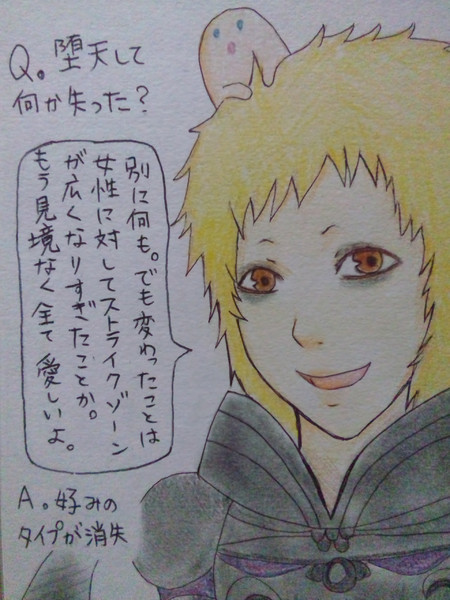 Q。堕天して
何か失った？
別に何も。でも変わったことは
女性に対してストライクゾーン
が広くなりすぎたことか。
もう見境なく全て愛しいよ。
A。好みの
タイプが消失